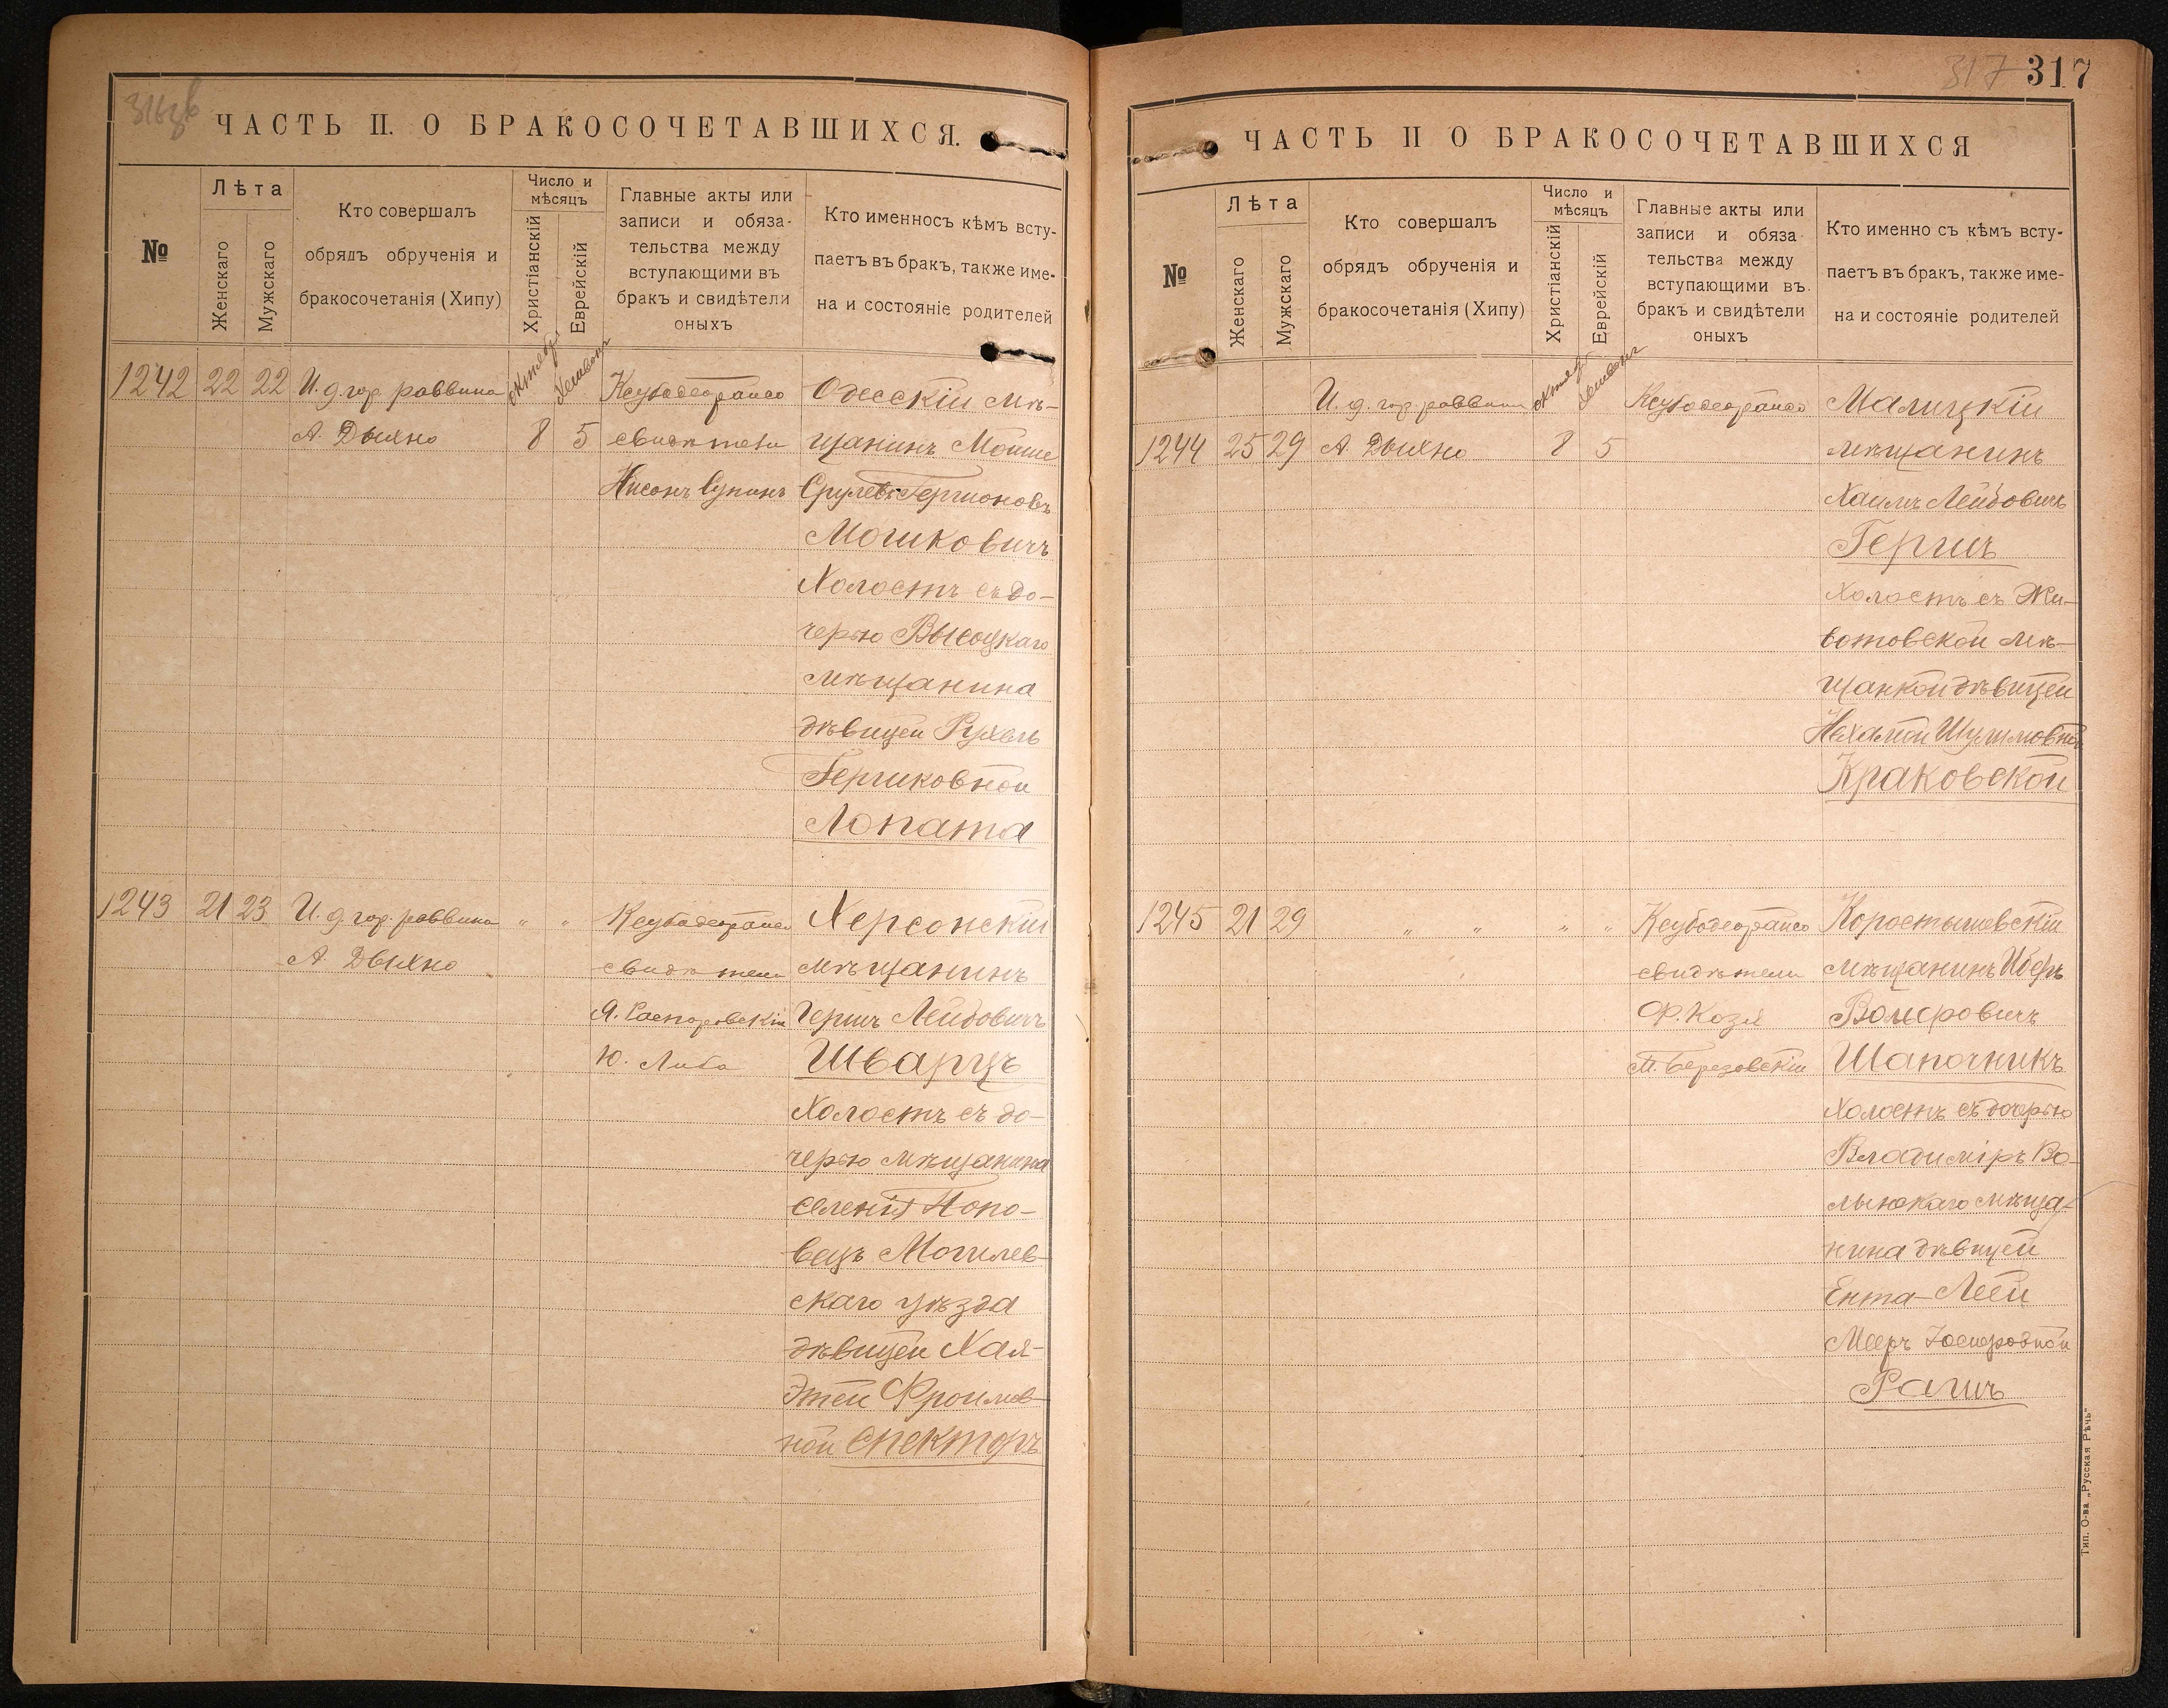 316об
ЧАСТЬ II. О БРАКОСОЧЕТАВШИХСЯ.
№
Лѣта
Женскаго
Мужскаго
Кто совершалъ
обрядъ обрученія и
бракосочетанія (Хипу)
Число и
мѣсяцъ
Христіанскій
Еврейскій
Главные акты или
записи и обяза-
тельства между
вступающими въ
бракъ и свидѣтели
оныхъ
Кто именносъ кѣмъ всту-
паетъ въ бракъ, также име-
на и состояніе родителей
1242 22 22 И. д. гор. раввина
А. Дыхно
октябрь
8
Хешвонъ
5
свидѣтели
Нисонъ
Одесскій мѣ-
щанинъ Мойше
Срулевъ-Гершоновъ
Мошковичъ
Холостъ съ до-
черью Высоцкаго
мѣщанина
дѣвицей Рухель
Гершковной
Лопата
1243 21 23 И. д. гор. раввина " "
А. Дыхно
свидѣтели
Ю. Либо
Херсонскій
мѣщанинъ
Гершъ Лейбовичъ
Шварцъ
Холостъ съ до-
черью мѣщанина
селенія Попо-
вецъ Могилев-
скаго уѣзда
дѣвицей Хая-
Этей Фроимов-
ной Спекторъ
317 317
ЧАСТЬ II О БРАКОСОЧЕТАВШИХСЯ
№
Лѣта
Женскаго
Мужскаго
Кто совершалъ
обрядъ обрученія и
бракосочетанія (Хипу)
Число и
мѣсяцъ
Христіанскій
Еврейскій
Главные акты или
записи и обяза
тельства между
вступающими въ
бракъ и свидѣтели
оныхъ
Кто именно съ кѣмъ всту-
паетъ въ бракъ, также име-
на и состояніе родителей
1244 25 29
И. д. гор. раввина
А. Дыхно
октябрь
8
Хешвонъ
5
Малицкій
мѣщанинъ
Хаимъ Лейбовичъ
Гершъ
Холостъ съ Жи-
вотовской мѣ-
щанкой дѣвицей
Нехамой Шулимовной
Краковской
1245 21 29 " " " "
свидѣтели
Ф. Козя
М. Березовскій
Коростышевскій
мѣщанинъ
Шапочникъ
Холостъ съ дочерью
Владимiръ Во-
лынскаго мѣща-
нина дѣвицей
Ента-Леей
Рашъ
Тип. О-ва „Русская Рѣчь"